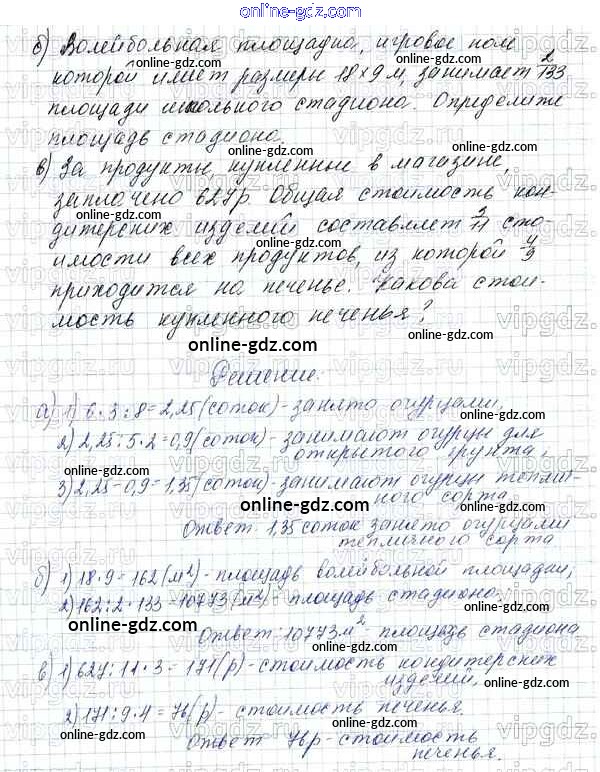 online-gdz.com
б) Волейбольная площадка, игровое поле
которой имеет размеры 18×9 м, занимает 2/133
площади школьного стадиона. Определите
площадь стадиона.
в) За продукты, купленные в магазине,
заплачено 627 р. Общая стоимость кон-
дитерских изделий составляет 3/11 сто-
имости всех продуктов, из которой 4/9
приходится на печенье. Какова стои-
мость купленного печенья?
online-gdz.com
Решение.
а) 1) 6·3:8=2,25 (соток) - занято огурцами,
2) 2,25:5·2=0,9 (соток) - занимают огурцы для
открытого грунта,
3) 2,25-0,9=1,35 (соток) - занимают огурцы теплич-
ного сорта
Ответ: 1,35 соток занято огурцами
тепличного сорта
б) 1) 18·9=162 (м²) - площадь волейбольной площадки,
2) 162:2·133=10773 (м²) - площадь стадиона.
Ответ: 10773 м² площадь стадиона
в) 1) 627:11·3=171 (р) - стоимость кондитерских
изделий,
2) 171:9·4=76 (р) - стоимость печенья.
Ответ: 76 р - стоимость
печенья.